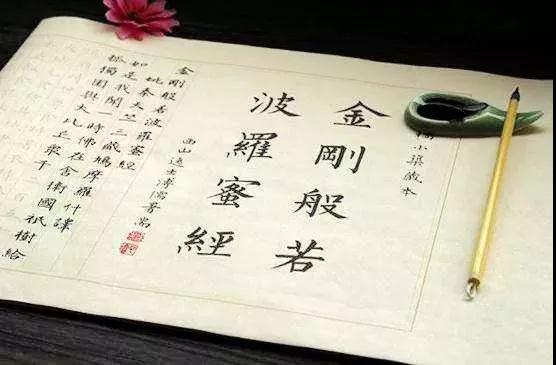 小梁藏本
金剛般若
波羅蜜經
西山逸士溥儒書耑
金剛般若波羅蜜經
姚秦天竺三藏鳩摩羅什譯
如是我聞一時佛在舍衛國祇樹給
孤獨園與大比丘眾千